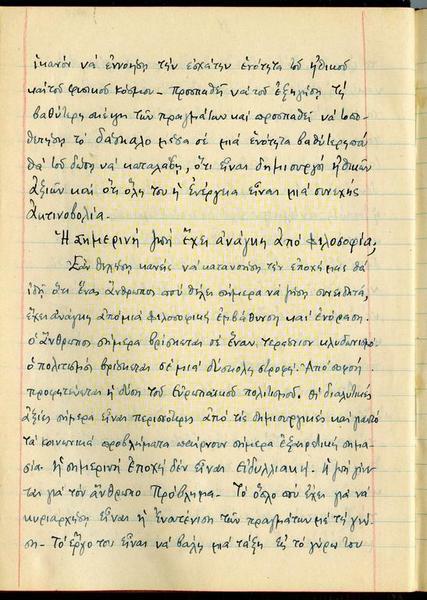 ἱκανόν νά ἐννοήση τήν ἐσχάτην ἑνότητα τοῦ ἠθικοῦ
καί τοῦ φυσικοῦ κόσμου - προσπαθεῖ νά τοῦ ἐξηγήση τή
βαθύτερη σκέψη τῶν πραγμάτων καί προσπαθεῖ νά
τό δάσκαλο μέσα σέ μιά ἑνότητα βαθύτερη
θά τοῦ δώση νά καταλάβη, ὅτι εἶναι δημιουργός ἠθικῶν
ἀξιῶν καί ὅτι ὅλη του ἡ ἐνέργεια εἶναι μιά συνεχής
ἀκτινοβολία.
Ἡ σημερινή ζωή ἔχει ἀνάγκη ἀπό φιλοσοφία;
Ἐάν θελήση κανείς νά κατανοήση τήν ἐποχή μας θά
ἰδῆ ὅτι ἕνας ἄνθρωπος πού θέλει σήμερα νά ζήση συνειδητά,
ἔχει ἀνάγκη ἀπό μιά φιλοσοφική ἐμβάθυνση καί ἐνόραση.
Ὁ ἄνθρωπος σήμερα βρίσκεται σέ ἕναν τεράστιο κλυδωνισμό
ὁ πολιτισμός βρίσκεται σέ μιά δύσκολη στροφή. Ἀπό σοφούς
προφητεύεται ἡ δύση τοῦ Εὐρωπαϊκοῦ πολιτισμοῦ. Οἱ διαλυτικές
ἀξίες σήμερα εἶναι περισσότερες ἀπό τίς δημιουργικές καί γιαυτό
τά κοινωνικά προβλήματα παίρνουν σήμερα ἐξαιρετική σημα-
σία. Ἡ σημερινή ἐποχή δέν εἶναι εἰδυλλιακή. Ἡ ζωή γίνε-
ται γιά τόν ἄνθρωπο Πρόβλημα. Τό ὅπλο πού ἔχει γιά νά
κυριαρχήση εἶναι ἡ ἐνατένιση τῶν πραγμάτων μέ τή γνώ-
ση - Τό ἔργο του εἶναι νά βάλη μιά τάξη εἰς τό γύρω του